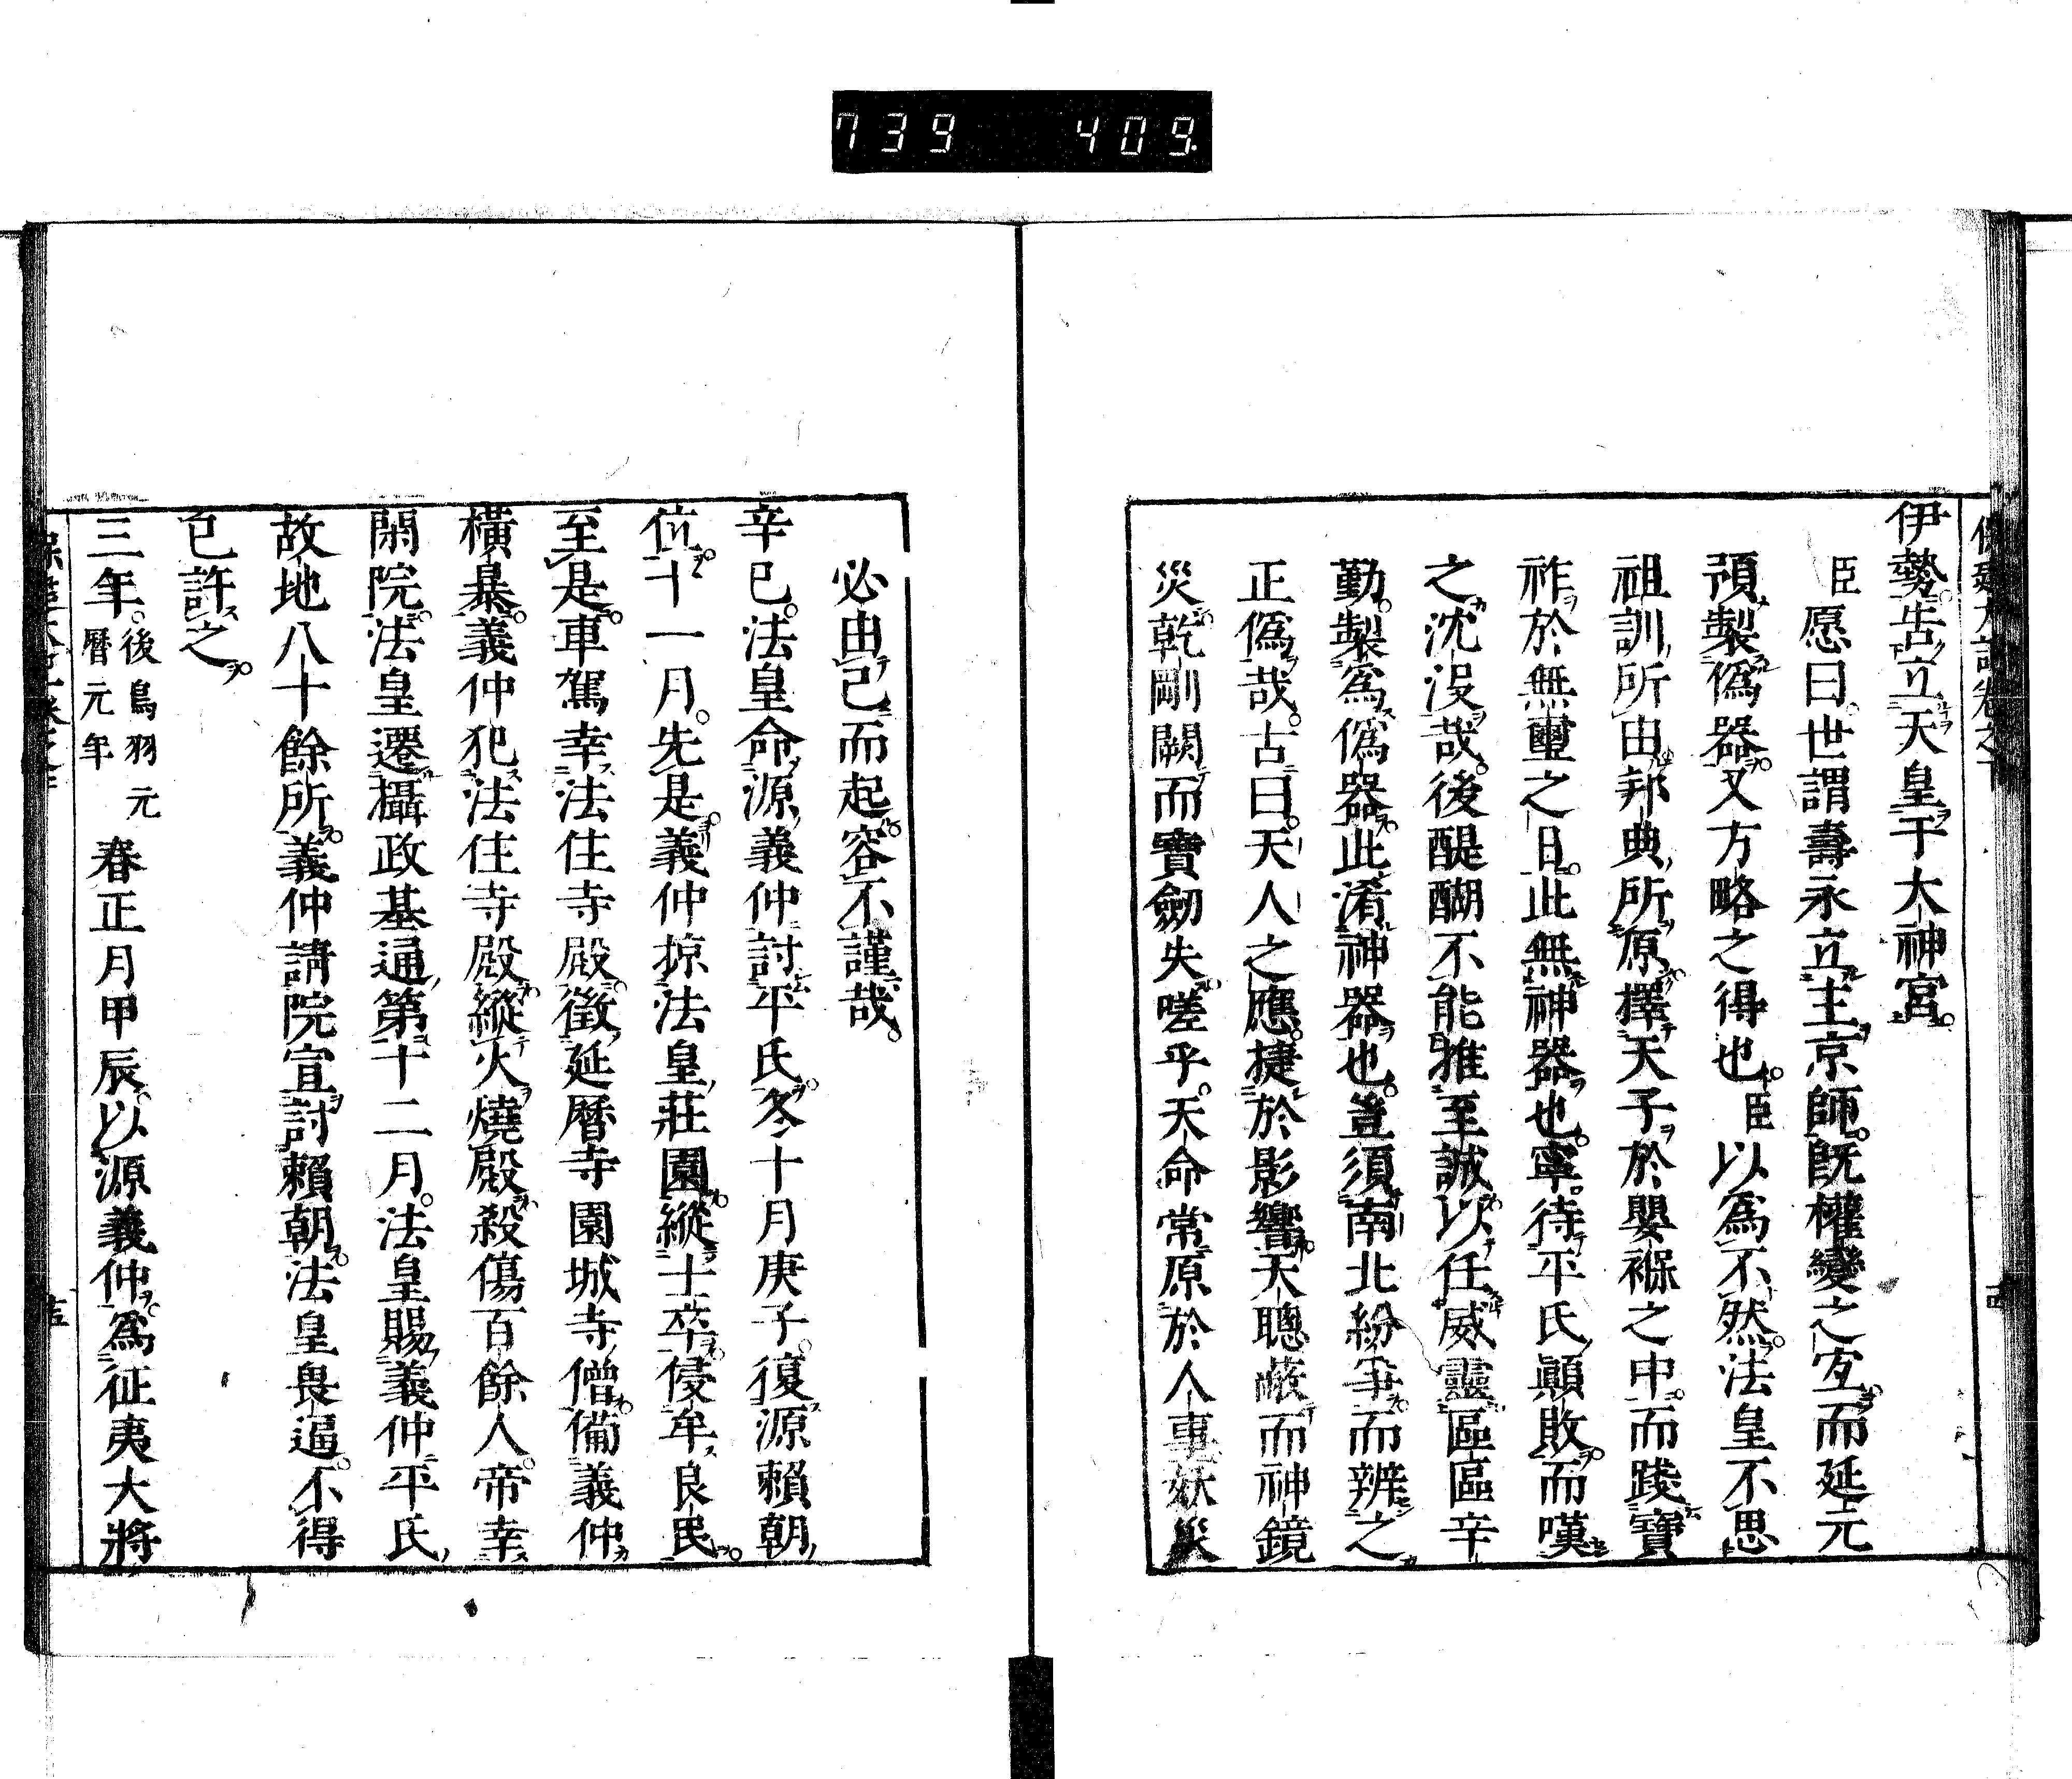 739 409
伊勢告立天皇于大神宮
臣愿曰世謂壽永立主京師旣權變之宜而延元
預製僞器又方略之得也臣以爲不然法皇不思
祖訓所由邦典所原擇天子於嬰褓之中而踐寶
祚於無璽之日此無神器也寧待平氏顚敗而嘆
之沈沒哉後醍醐不能推至誠以任威靈區區辛
勤製爲僞器此淆神器也豈須南北紛爭而辨之
正僞哉古曰天人之應捷於影響天聰蔽而神鏡
災乾剛闕而寶劔失嗟乎天命常原於人事妖災
必由己而起容不謹哉
辛巳法皇命源義仲討平氏冬十月庚子復源賴朝
位十一月先是義仲掠法皇莊園縱士卒侵牟良民
至是車駕幸法住寺殿徵延曆寺園城寺僧備義仲
橫暴義仲犯法住寺殿縱火燒殿殺傷百餘人帝幸
閑院法皇遷攝政基通第十二月法皇賜義仲平氏
故地八十餘所義仲請院宣討賴朝法皇畏逼不得
已許之
三年後鳥羽元曆元年春正月甲辰以源義仲爲征夷大將